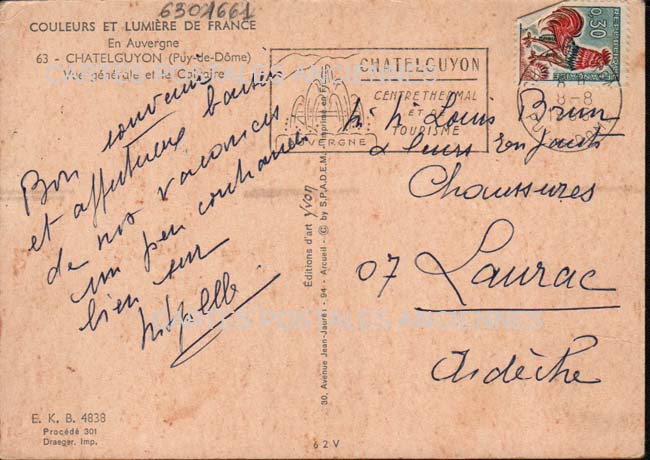 6301661
COULEURS ET LUMIÈRE DE FRANCE
En Auvergne
63 - CHATELGUYON (Puy-de-Dôme)
Vue générale et le Calvaire
Bon souvenir
et affectueux baisers
de nos vacances
un peu contrariées
bien sur
E. K. B. 4838
Procédé 301
Draeger. Imp.
Editions d'art yvon
30, Avenue Jean-Jaurès - 94 - Arcueil - © by S.P.A.D.E.M. - Imprimé en France
62V
CHATELGUYON
CENTRE THERMAL
ET
TOURISME
AUVERGNE
0,30
8-8
Mr Me Louis Brun
& leurs enfants
Chaussures
07 Laurac
Ardèche
CARTES POSTALES ANCIENNES